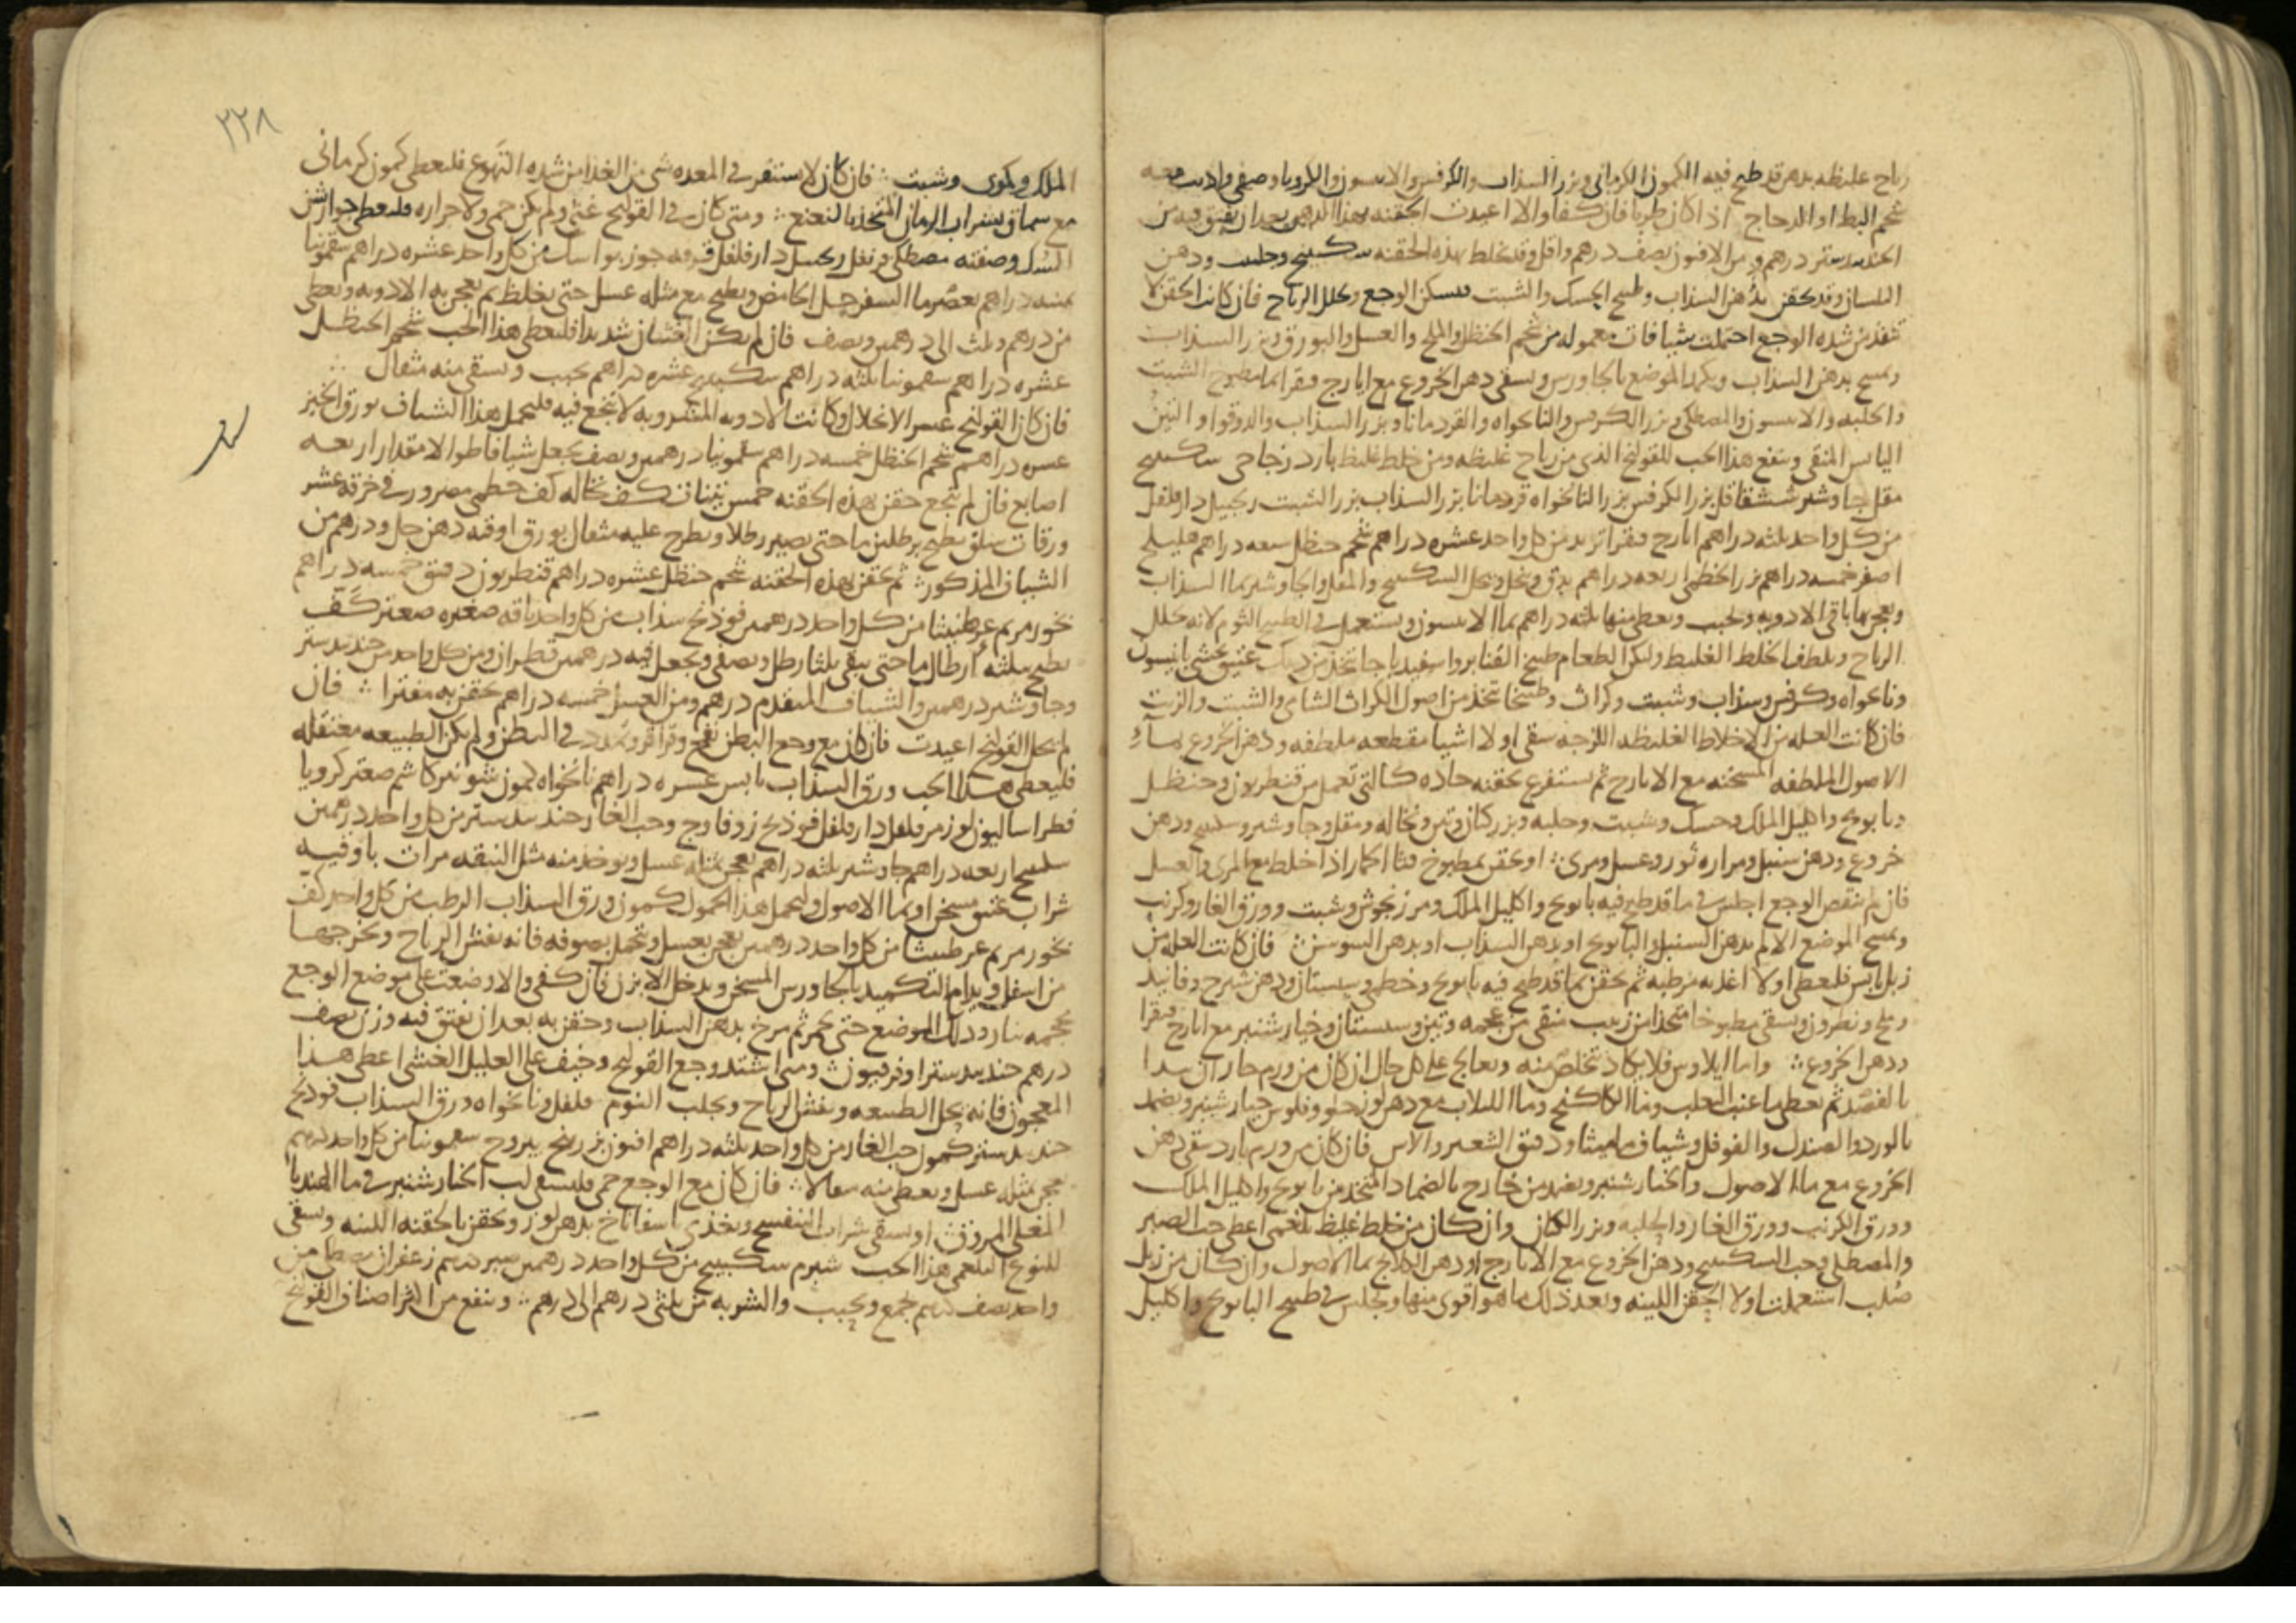 رياح غليظه بدهن قد طبخ فيه الكمون الكرماني وبزر السذاب والكرفس والانيسون والكرويا وصفي واديف معه
شحم البط او الدجاج اذا كان طريا فان كفا والا اعيدت الحقنه بهذا الدهن بعد ان يفتق فيه من
الجندبيدستر درهم ومن الافيون نصف درهم واقل وقد يخلط بهذه الحقنه سكبينج وحلتيت ودهن
البلسان وقد يحقن بدهن السذاب وطبيخ الحسك والشبت فيسكن الوجع ويحلل الرياح فان كانت الحقن لا
تنفذ من شده الوجع احتملت شيافات معموله من شحم الحنظل والملح والعسل والبورق وبزر السذاب
ويمسح بدهن السذاب ويكمد الموضع بالجاورس ويسقى دهن الخروع مع ايارج فيقرا بما مطبوخ الشبت
والحلبه والانيسون والمصطكي وبزر الكرفس والنانخواه والقردمانا وبزر السذاب والدوقوا والتين
اليابس المنقى وينفع هذا الحب للقولنج الذي من رياح غليظه ومن خلط غليظ بارد زجاجي سكبينج
مقل جاوشير شقاقل بزر الكرفس بزر النانخواه قردمانا بزر السذاب بزر الشبت زنجبيل دارفلفل
من كل واحد ثلثه دراهم ايارج فيقرا تربد من كل واحد عشره دراهم شحم حنظل سبعه دراهم هليلج
اصفر خمسه دراهم بزر الخطمي اربعه دراهم يدق وينخل ويحل السكبينج والمقل والجاوشير بما السذاب
ويعجن بها باقي الادويه ويحبب ويعطى منها ثلثه دراهم بما الانيسون ويستعمل في الطبيخ الثوم لانه يحلل
الرياح ويلطف الخلط الغليظ وليكن الطعام طبيخ القنابر واسفيدباجا تتخذ من ديك عتيق محشي بانيسون
ونانخواه وكرفس وسذاب وشبت وكراث وطبيخا تتخذ من اصول الكراث الشامي والشبت والزيت
فان كانت العله من الاخلاط الغليظه اللزجه سقي اولا اشيا مقطعه ملطفه ودهن الخروع بماء
الاصول الملطفه المسخنه مع الايارج ثم يستفرغ بحقنه حاده كالتي تعمل من قنطريون وحنظل
وبابونج واكليل الملك وحسك وشبت وحلبه وبزر كتان وتين ونخاله ومقل وجاوشير وسكبينج ودهن
خروع ودهن سنبل ومراره ثور وعسل ومري او يحقن بمطبوخ قثا الحمار اذا خلط مع المري والعسل
فان لم ينقص الوجع اجلس في ما قد طبخ فيه بابونج واكليل الملك ومرزنجوش وشبت وورق الغار وكرنب
ويمسح الموضع الالم بدهن السنبل والبابونج او بدهن السذاب او بدهن السوسن فان كانت العله من
زبل يابس فليعطى اولا اغذيه مرطبه ثم يحقن بما قد طبخ فيه بابونج وخطمي وسبستان ودهن شيرج وفانيد
وملح ونطرون ويسقى مطبوخا متخذا من زبيب منقى من عجمه وتين وسبستان وخيارشنبر مع ايارج فيقرا
ودهن الخروع واما ايلاوس فلا يكاد يتخلص منه ويعالج على كل حال ان كان من ورم حار ان يبدا
بالفصد ثم يعطى ما عنب الثعلب وما الكاكنج وما اللبلاب مع دهن لوز حلو وفلوس خيارشنبر ويضمد
بالورد والصندل والفوفل وشياف ماميثا ودقيق الشعير والاس فان كان من ورم بارد سقي دهن
الخروع مع ماء الاصول والخيارشنبر ويضمد من خارج بالضماد المتخذ من بابونج واكليل الملك
وورق الكرنب وورق الغار والحلبه وبزر الكتان وان كان من خلط غليظ بلغمي اعطي حب الصبر
والمصطكي وحب السكبينج ودهن الخروع مع الايارج او دهن الكلكلانج بما الاصول وان كان من زبل
صلب استعملت اولا الحقن اللينه وبعد ذلك ما هو اقوى منها ويجلس في طبيخ البابونج واكليل
٢٢٨
الملك وكرنب وشبت فان كان لا يستقر في المعده شي من الغذا من شده التهوع فليعطى كمون كرماني
مع سماق بشراب الرمان المتخذ بالنعنع ومتى كان في القولنج غثي ولم يكن حمى ولا حراره فليعطى جوارشن
وصفته مصطكي قرنفل زنجبيل دارفلفل قرفه جوزبوا من كل واحد عشره دراهم سقمونيا
دراهم يعصر ما السفرجل الحامض ويطبخ مع مثله عسل حتى يغلظ ثم يعجن به الادويه ويعطى
من درهم وثلث الى درهمين ونصف فان لم يكن الغشيان شديدا فليعطى هذا الحب شحم الحنظل
عشره دراهم سقمونيا ثلثه دراهم سكبينج عشره دراهم يحبب ويسقى منه مثقال
فان كان القولنج عسر الانحلال وكانت الادويه المشروبه لا تنجع فيه فليحمل هذا الشياف بورق الخبز
عشره دراهم شحم الحنظل خمسه دراهم سقمونيا درهمين ونصف يجعل شيافا طوالا مقدار اربعه
اصابع فان لم تنجع حقن بهذه الحقنه خمس تينات كف نخاله كف خطمي مصرور في خرقه عشر
ورقات سلق يطبخ برطلين ما حتى يصير رطلا ويطرح عليه مثقال بورق اوقيه دهن حل ودرهم من
الشياف المذكور ثم يحقن بهذه الحقنه شحم حنظل عشره دراهم قنطريون دقيق خمسه دراهم
بخور مريم عرطنيثا من كل واحد درهمين فوذنج سذاب من كل واحد باقه صغيره صعتر كف
يطبخ بثلثه ارطال ما حتى يبقى ثلثا رطل ويصفى ويجعل فيه درهمين قطران ومن كل واحد من جندبيدستر
وجاوشير درهمين والشياف المتقدم درهم ومن العسل خمسه دراهم يحقن به مفترا فان
لم ينحل القولنج اعيدت فان كان مع وجع البطن نفخ وقراقر وتمدد في البطن ولم يكن الطبيعه معتقله
فليعطى هذا الحب ورق السذاب يابس عشره دراهم نانخواه كمون شونيز كاشم صعتر كرويا
فطراساليون لوز مر فلفل دارفلفل فوذنج زوفا وج وحب الغار جندبيدستر من كل واحد درهمين
سكبينج اربعه دراهم جاوشير ثلثه دراهم يعجن بمثله عسل ويوخذ منه مثل البندقه مرات باوقيه
شراب عتيق مسخن او بما الاصول وليحمل هذا الحمول كمون ورق السذاب الرطب من كل واحد كف
بخور مريم عرطنيثا من كل واحد درهمين يعجن بعسل وتحمل بصوفه فانه يفش الرياح ويخرجها
من اسفل ويدام التكميد بالجاورس المسخن ويدخل الابزن فان كفى والا وضعت على موضع الوجع
محجمه بنار ودلك الموضع حتى يحمر ثم مرخ بدهن السذاب وحقن به بعد ان يفتق فيه وزن نصف
درهم جندبيدستر او فرفيون ومتى اشتد وجع القولنج وخيف على العليل الغشي اعطي هذا
المعجون فانه يحل الطبيعه ويفش الرياح ويجلب النوم فلفل ونانخواه ورق السذاب فوذنج
جندبيدستر كمون حب الغار من كل واحد ثلثه دراهم افيون بزر بنج يبروح سقمونيا من كل واحد درهم
يعجن بمثله عسل ويعطى منه مثقالا فان كان مع الوجع حمى فليسقى لب الخيارشنبر في ما الهندبا
المغلى المروق او يسقى شراب البنفسج ويغذى باسفاناخ بدهن لوز ويحقن بالحقنه اللينه ويسقى
للنوع البلغمي هذا الحب شبرم سكبينج من كل واحد درهمين صبر درهم زعفران مصطكي من
واحد نصف درهم يجمع ويحبب والشربه من ثلثي درهم الى درهم وينفع من اكثر اصناف القولنج